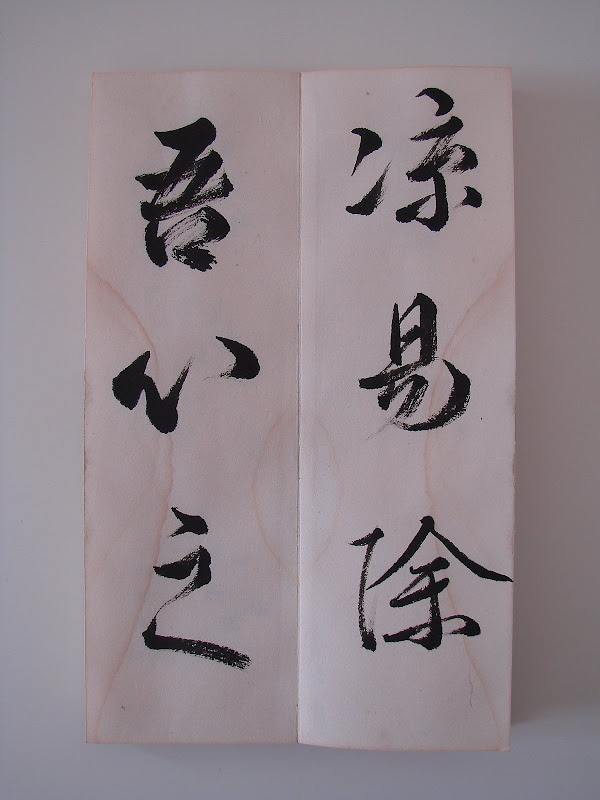 凉易除
吾心之